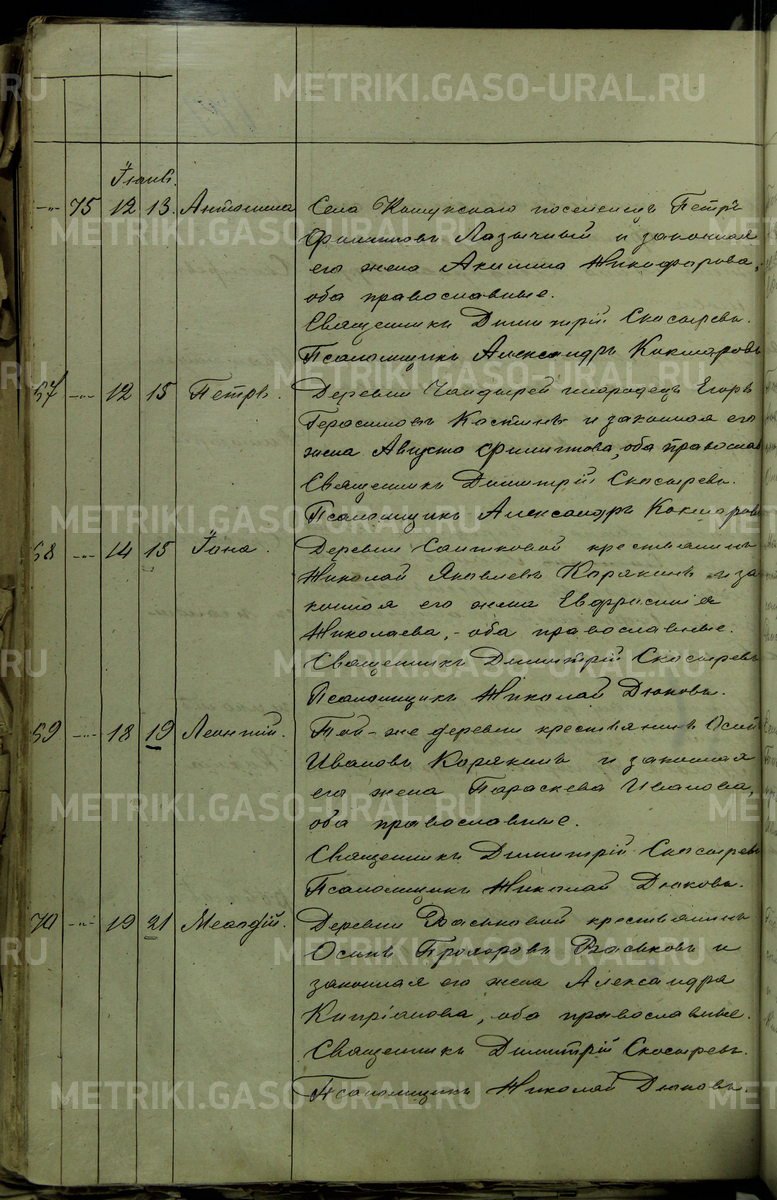 METRIKI.GASO-URAL.RU
Iюнь.
-"- 75 12 13. Антонина Села Кошукскаго поселенецъ Петръ
Филиповъ Лазычный и законная
его жена Акилина Никифорова,
оба православные.
Священникъ Димитрій Скосыревъ.
Псаломщикъ Александръ Кокшаровъ
67 -"- 12 15 Петръ. Деревни Чандырей инородецъ Егоръ
Герасимовъ Костинъ и законная его
жена Августа Филиппова, оба православ
Священникъ Димитрій Скосыревъ.
Псаломщикъ Александръ Кокшаровъ
68 -"- 14 15 Iона. Деревни Саитковой крестьянинъ
Николай Яковлевъ Корякинъ и за-
конная его жена Евфросинія
Николаева, - оба православные.
Священникъ Димитрій Скосыревъ
Псаломщикъ Николай Дюковъ.
69 -"- 18 19 Леонтій. Той-же деревни крестьянинъ Осипъ
Ивановъ Корякинъ и законная
его жена Параскева Иванова,
оба православные.
Священникъ Димитрій Скосыревъ
Псаломщикъ Николай Дюковъ.
70 -"- 19 21 Меѳодій. Деревни Васьковой крестьянинъ
Осипъ Прохоровъ Васьковъ и
законная его жена Александра
Кипріанова, оба православные.
Священникъ Димитрій Скосыревъ.
Псаломщикъ Николай Дюковъ.